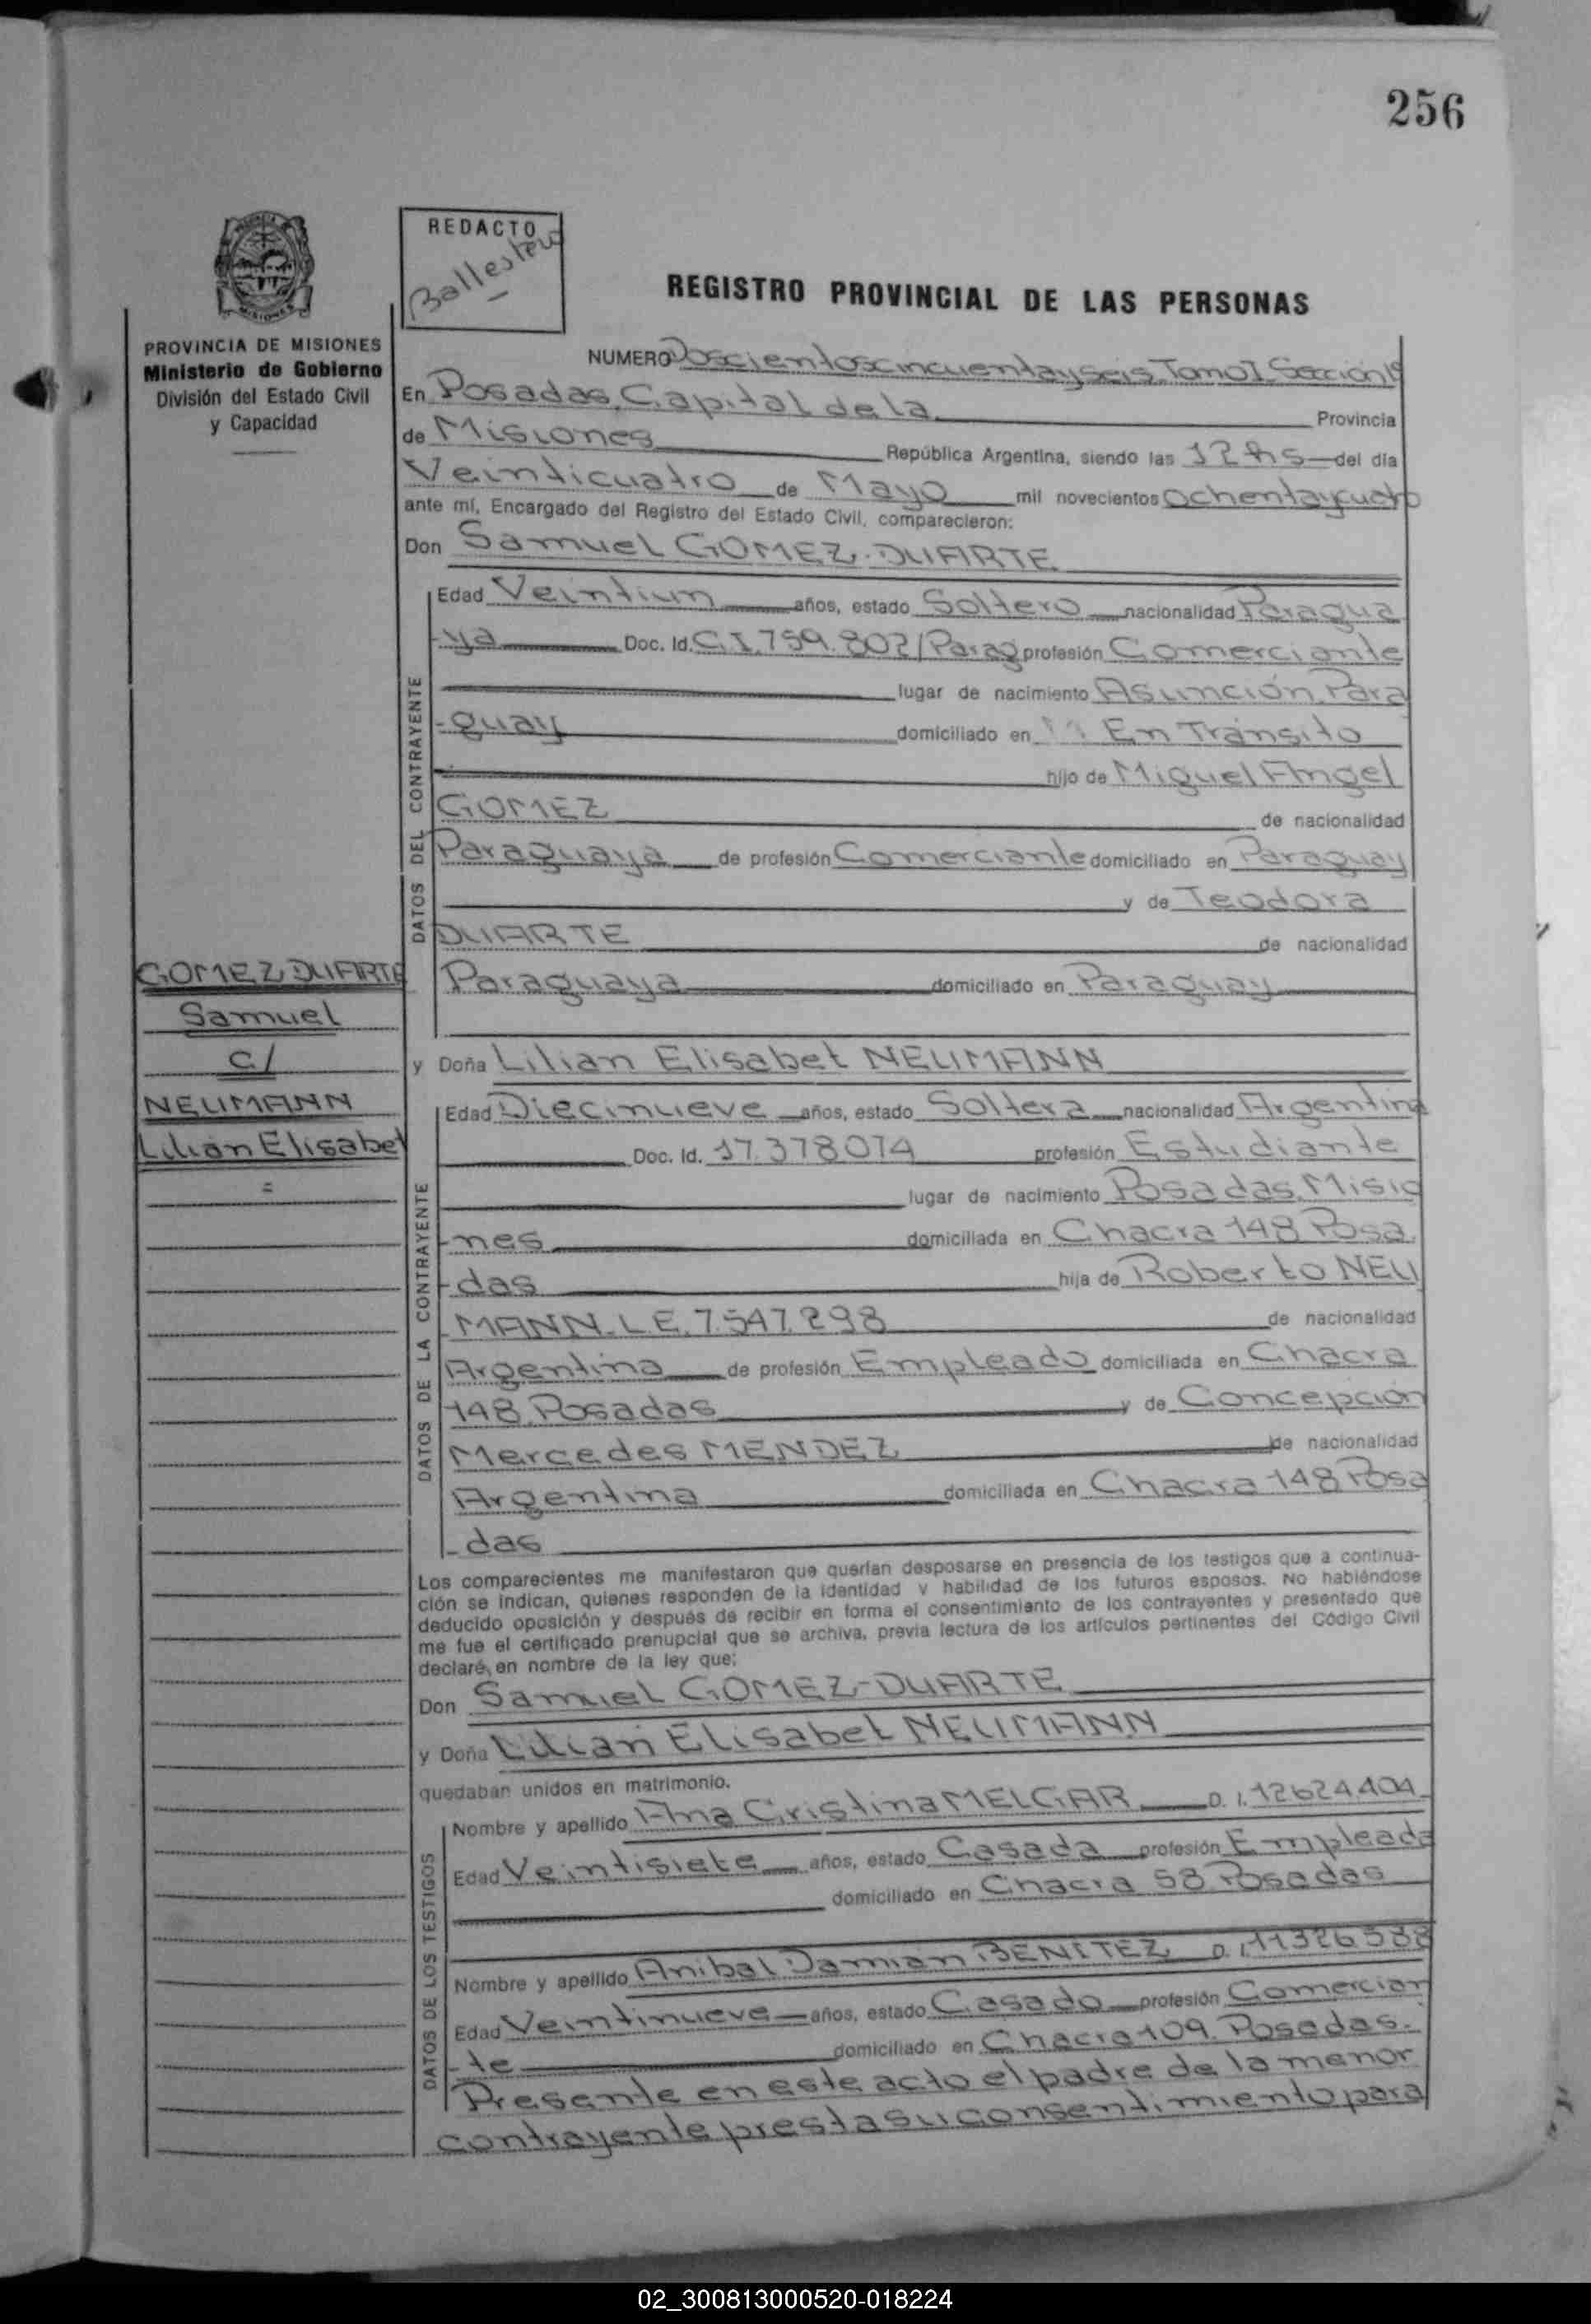 256
REDACTO
Ballestero
REGISTRO PROVINCIAL DE LAS PERSONAS
PROVINCIA DE MISIONES
Ministerio de Gobierno
División del Estado Civil
y Capacidad
NUMERO Doscientoscincuentayseis Tomo I Sección 1º
En Posadas, Capital de la Provincia
de Misiones República Argentina, siendo las 12 hs del día
Veinticuatro de Mayo mil novecientos ochentaycuatro
ante mí, Encargado del Registro del Estado Civil, comparecieron:
Don Samuel GOMEZ-DUARTE
DATOS DEL CONTRAYENTE
Edad Veintiun años, estado Soltero nacionalidad Paragua
-ya Doc. Id. C.I.759.802/Parag profesión Comerciante
lugar de nacimiento Asunción, Para
-guay domiciliado en En Tránsito
hijo de Miguel Angel
GOMEZ de nacionalidad
Paraguaya de profesión Comerciante domiciliado en Paraguay
y de Teodora
DUARTE de nacionalidad
Paraguaya domiciliado en Paraguay
GOMEZ DUARTE
Samuel
c/
NEUMANN
Lilian Elisabet
=
y Doña Lilian Elisabet NEUMANN
DATOS DE LA CONTRAYENTE
Edad Diecinueve años, estado Soltera nacionalidad Argentina
Doc. Id. 17.378074 profesión Estudiante
lugar de nacimiento Posadas, Misio
-nes domiciliada en Chacra 148 Posa
-das hija de Roberto NEU
MANN-L.E. 7.547.298 de nacionalidad
Argentina de profesión Empleado domiciliada en Chacra
148 Posadas y de Concepción
Mercedes MENDEZ de nacionalidad
Argentina domiciliada en Chacra 148 Posa
-das
Los comparecientes me manifestaron que querían desposarse en presencia de los testigos que a continua-
ción se indican, quienes responden de la identidad y habilidad de los futuros esposos. No habiéndose
deducido oposición y después de recibir en forma el consentimiento de los contrayentes y presentado que
me fue el certificado prenupcial que se archiva, previa lectura de los artículos pertinentes del Código Civil
declaré, en nombre de la ley que:
Don Samuel GOMEZ-DUARTE
y Doña Lilian Elisabet NEUMANN
quedaban unidos en matrimonio.
DATOS DE LOS TESTIGOS
Nombre y apellido Ana Cristina MELGAR D.I. 12624.404
Edad Veintisiete años, estado Casada profesión Empleada
domiciliado en Chacra 58 Posadas
Nombre y apellido Anibal Damian BENITEZ D.I. 11326588
Edad Veintinueve años, estado Casado profesión Comercian
-te domiciliado en Chacra 109. Posadas.
Presente en este acto el padre de la menor
contrayente presta su consentimiento para
02_300813000520-018224